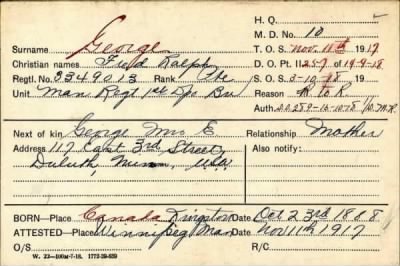 H. Q.
M. D. No. 10
Surname George
T. O. S. Nov. 11th 1917
Christian names Fred Ralph
D. O. Pt. II 257 of 14-9-18
Regtl. No. 2349013 Rank Pte
S. O. S. 3-10-18 19
Unit Man Regt 1st Dp Bn
Reason R to R
Auth. D.O. 289-16-10-18 10. M.R.
Next of kin George Mrs E
Relationship Mother
Address 117 East 3rd Street
Also notify:
Duluth, Minn, U.S.A.
BORN—Place Canada Kingston Date Oct 23rd 1888
ATTESTED—Place Winnipeg Man Date Nov 11th 1917
O/S
R/C
W. 22—100M-7-18. 1772-39-839